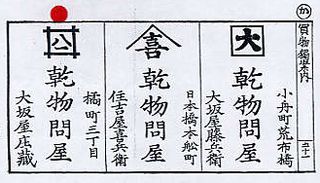 か
買物獨案内
大
乾物問屋
小舟町荒布橋
大坂屋藤兵衛
喜
乾物問屋
日本橋本舩町
住吉屋喜兵衛
八
乾物問屋
橘町三丁目
大坂屋庄蔵